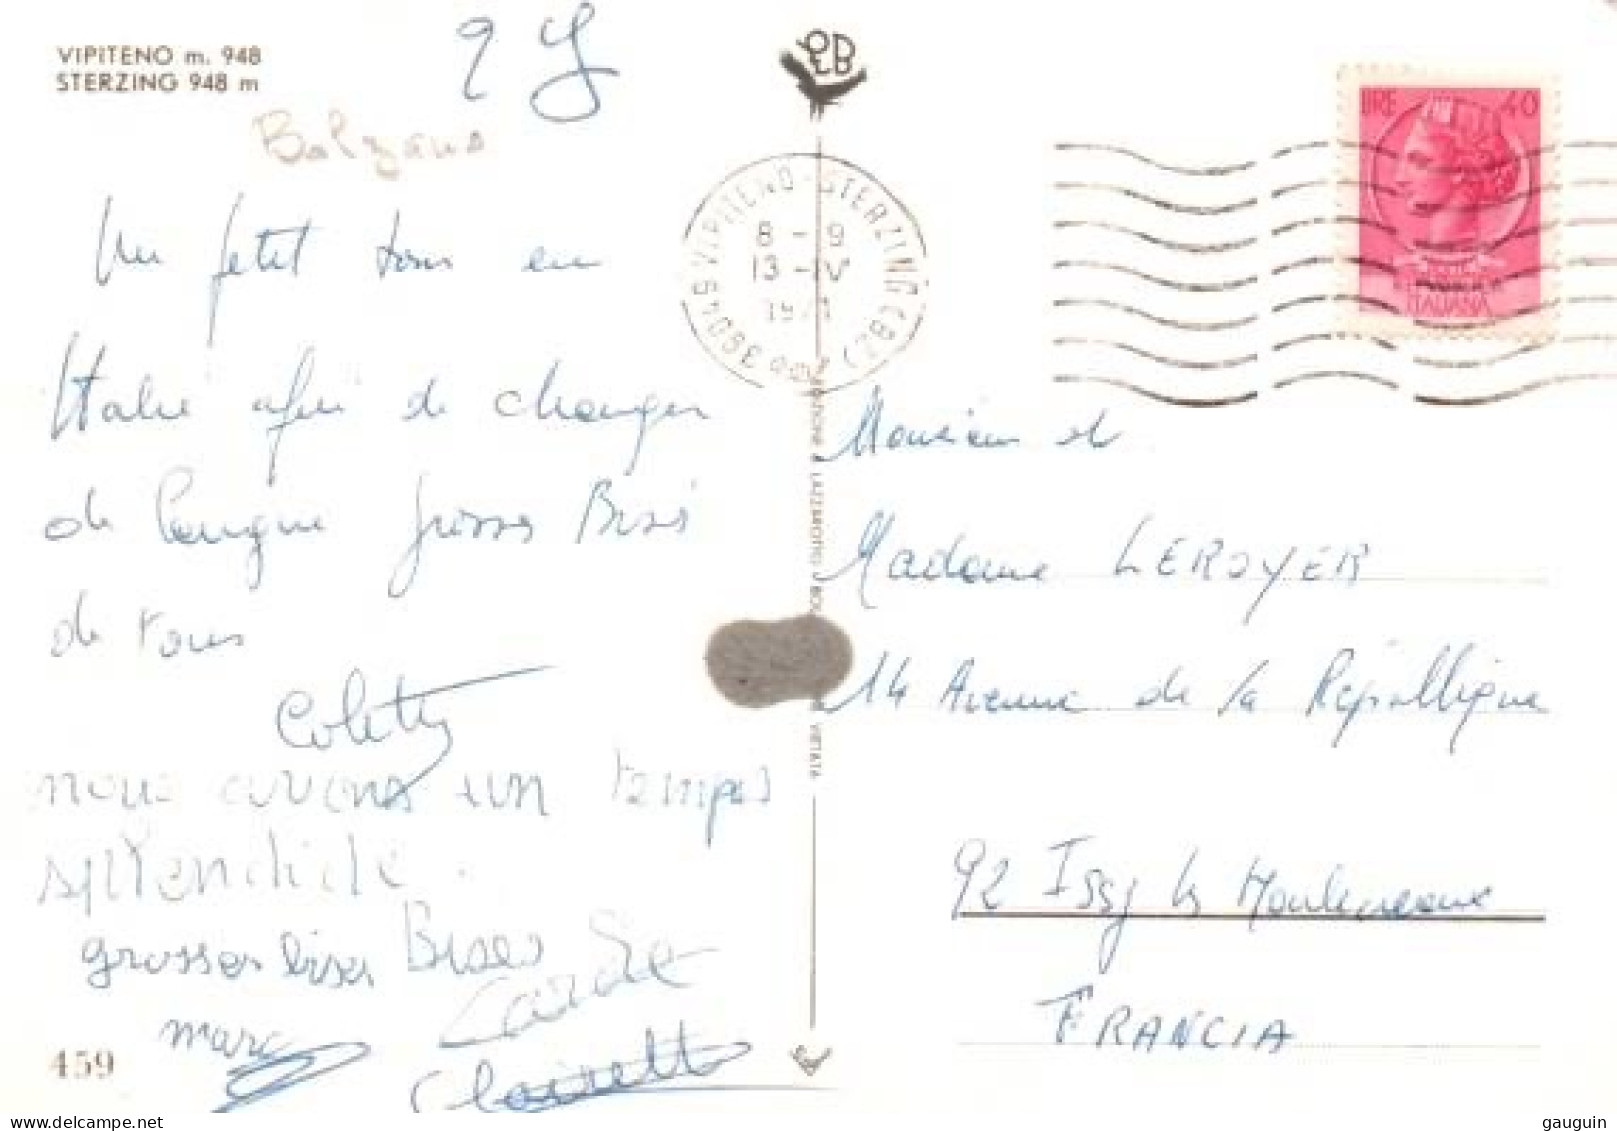 VIPITENO m. 948
STERZING 948 m
Bolzano
Un petit tour en
Italie afin de changer
de langue grosses Bises
de tous
Colette
nous avons un temps
splendide.
grosses bises Bises
Carole
marc
Clairette
459
VIPITENO-STERZING (BZ)
39049
8 - 9
13 - IV
LIRE 40
ITALIANA
Monsieur et
Madame LEROYER
14 Avenue de la République
92 Issy les Moulineaux
FRANCIA
gauguin